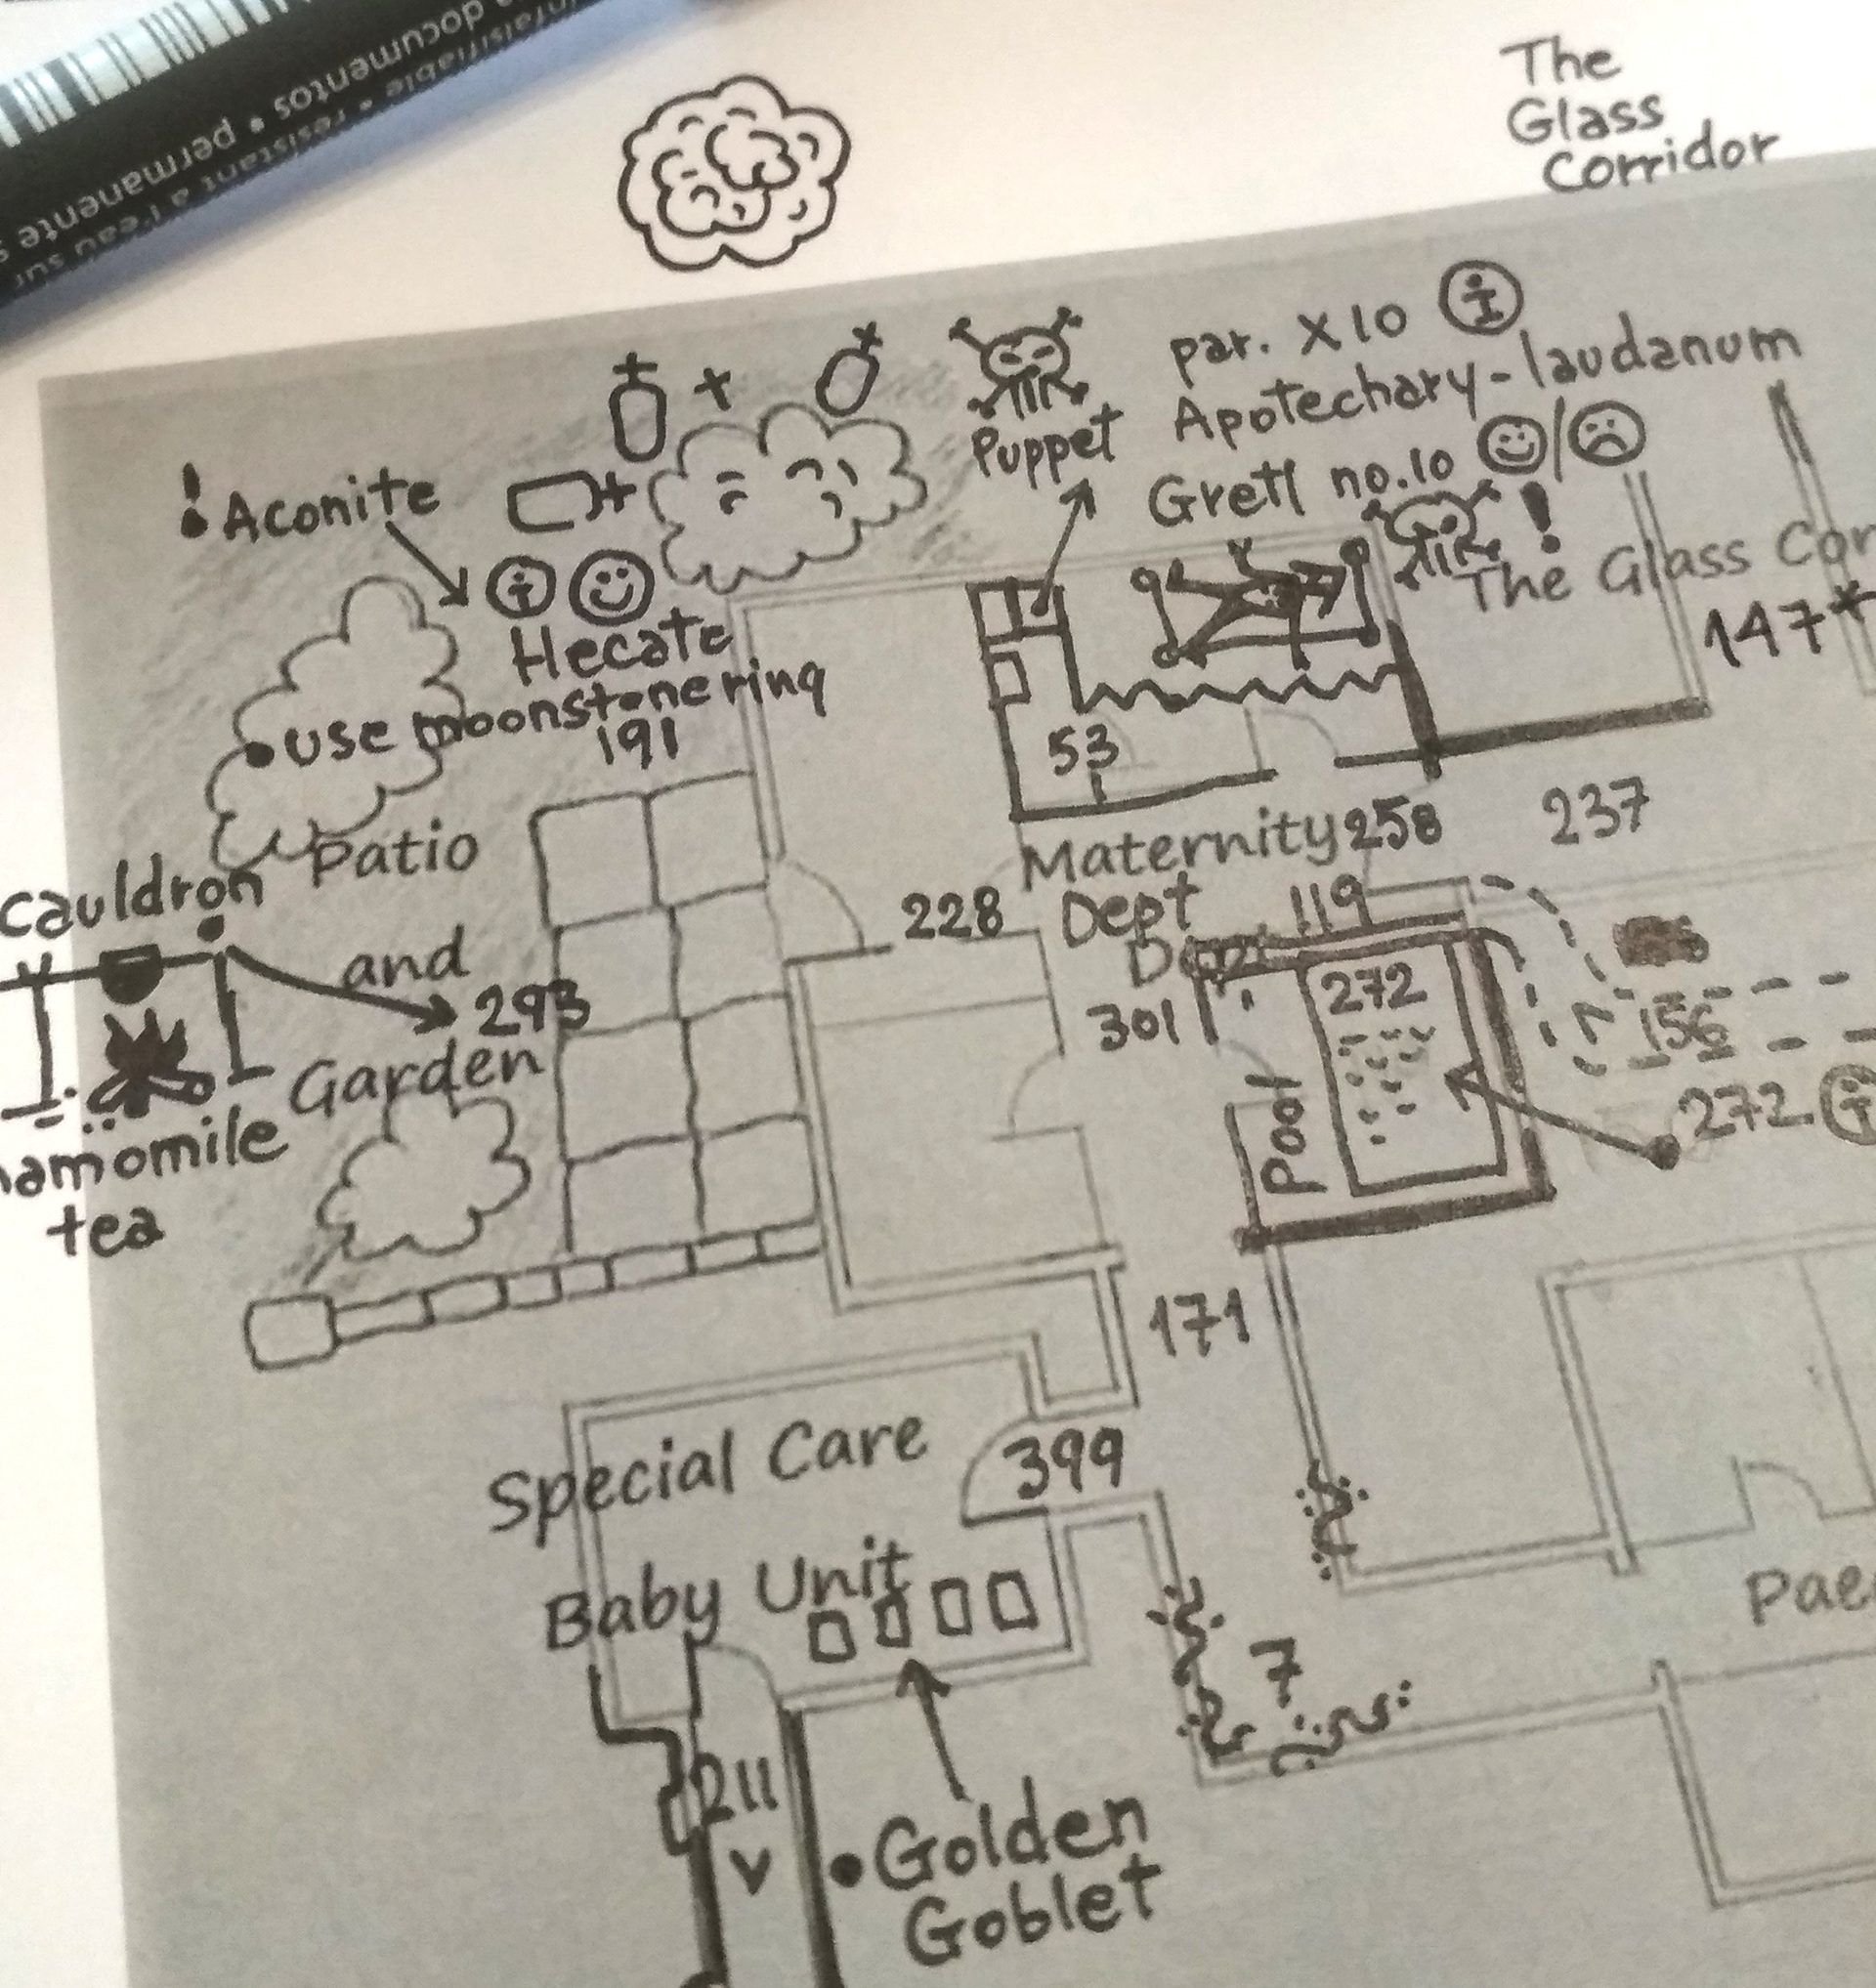 documentos • permanente
résistant à l'eau sur
The
Glass
Corridor
par. x10 i
Apotechary-laudanum
Puppet
Gretl no.10
! Aconite
!
The Glass Cor
147*
i
Hecate
• use moonstone ring
191
53
Patio
Maternity 258
237
cauldron
228
Dept
119
and
293
301
272
156
Garden
Pool
272. i
tea
171
Special Care
399
Baby Unit
7
211
v
• Golden
Goblet